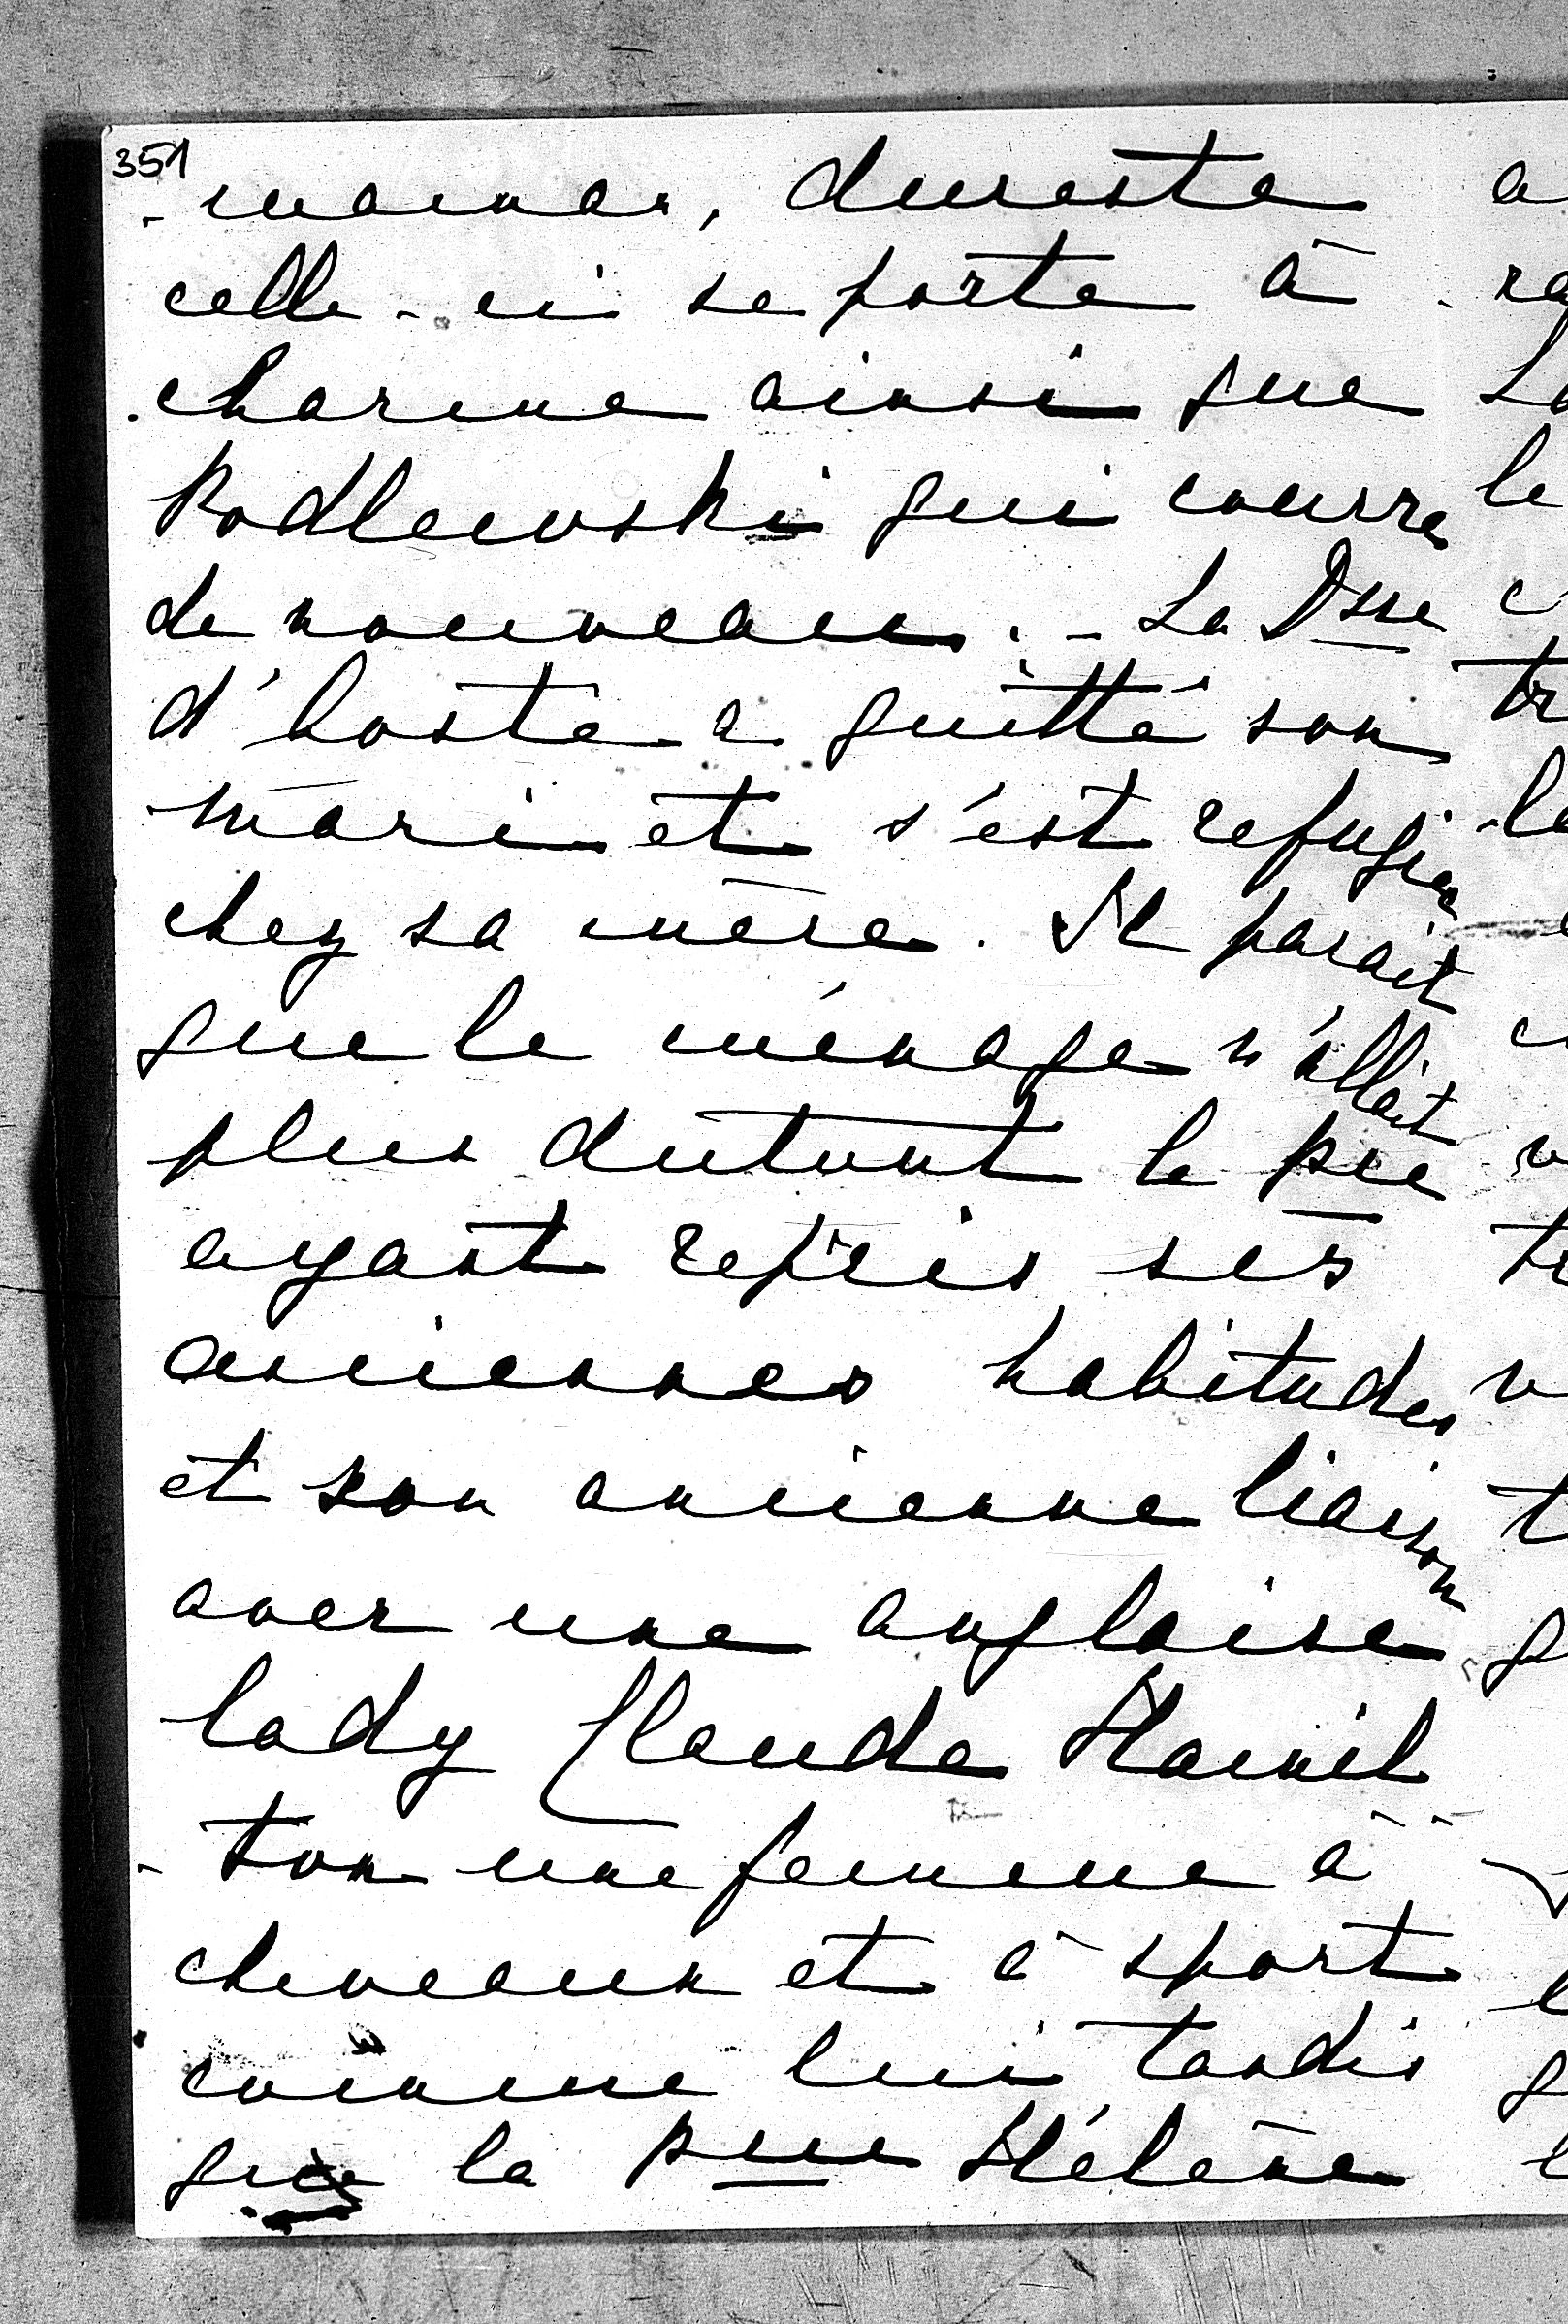 351
- maman, dureste
celle-ci se porte à
charme ainsi que
Podlewski qui courre
de nouveau. - La Dsse
d'Aoste a quitté son
mari et s'est refugiée
chez sa mère. Il parait
que le ménage n'allait
plus dutout le pce
ayant repris ses
anciennes habitudes
et son ancienne liaison
avec une anglaise
lady Claude Hamil
- ton une femme à
chevaux et à sport
comme lui tandis
que la psse Hélène